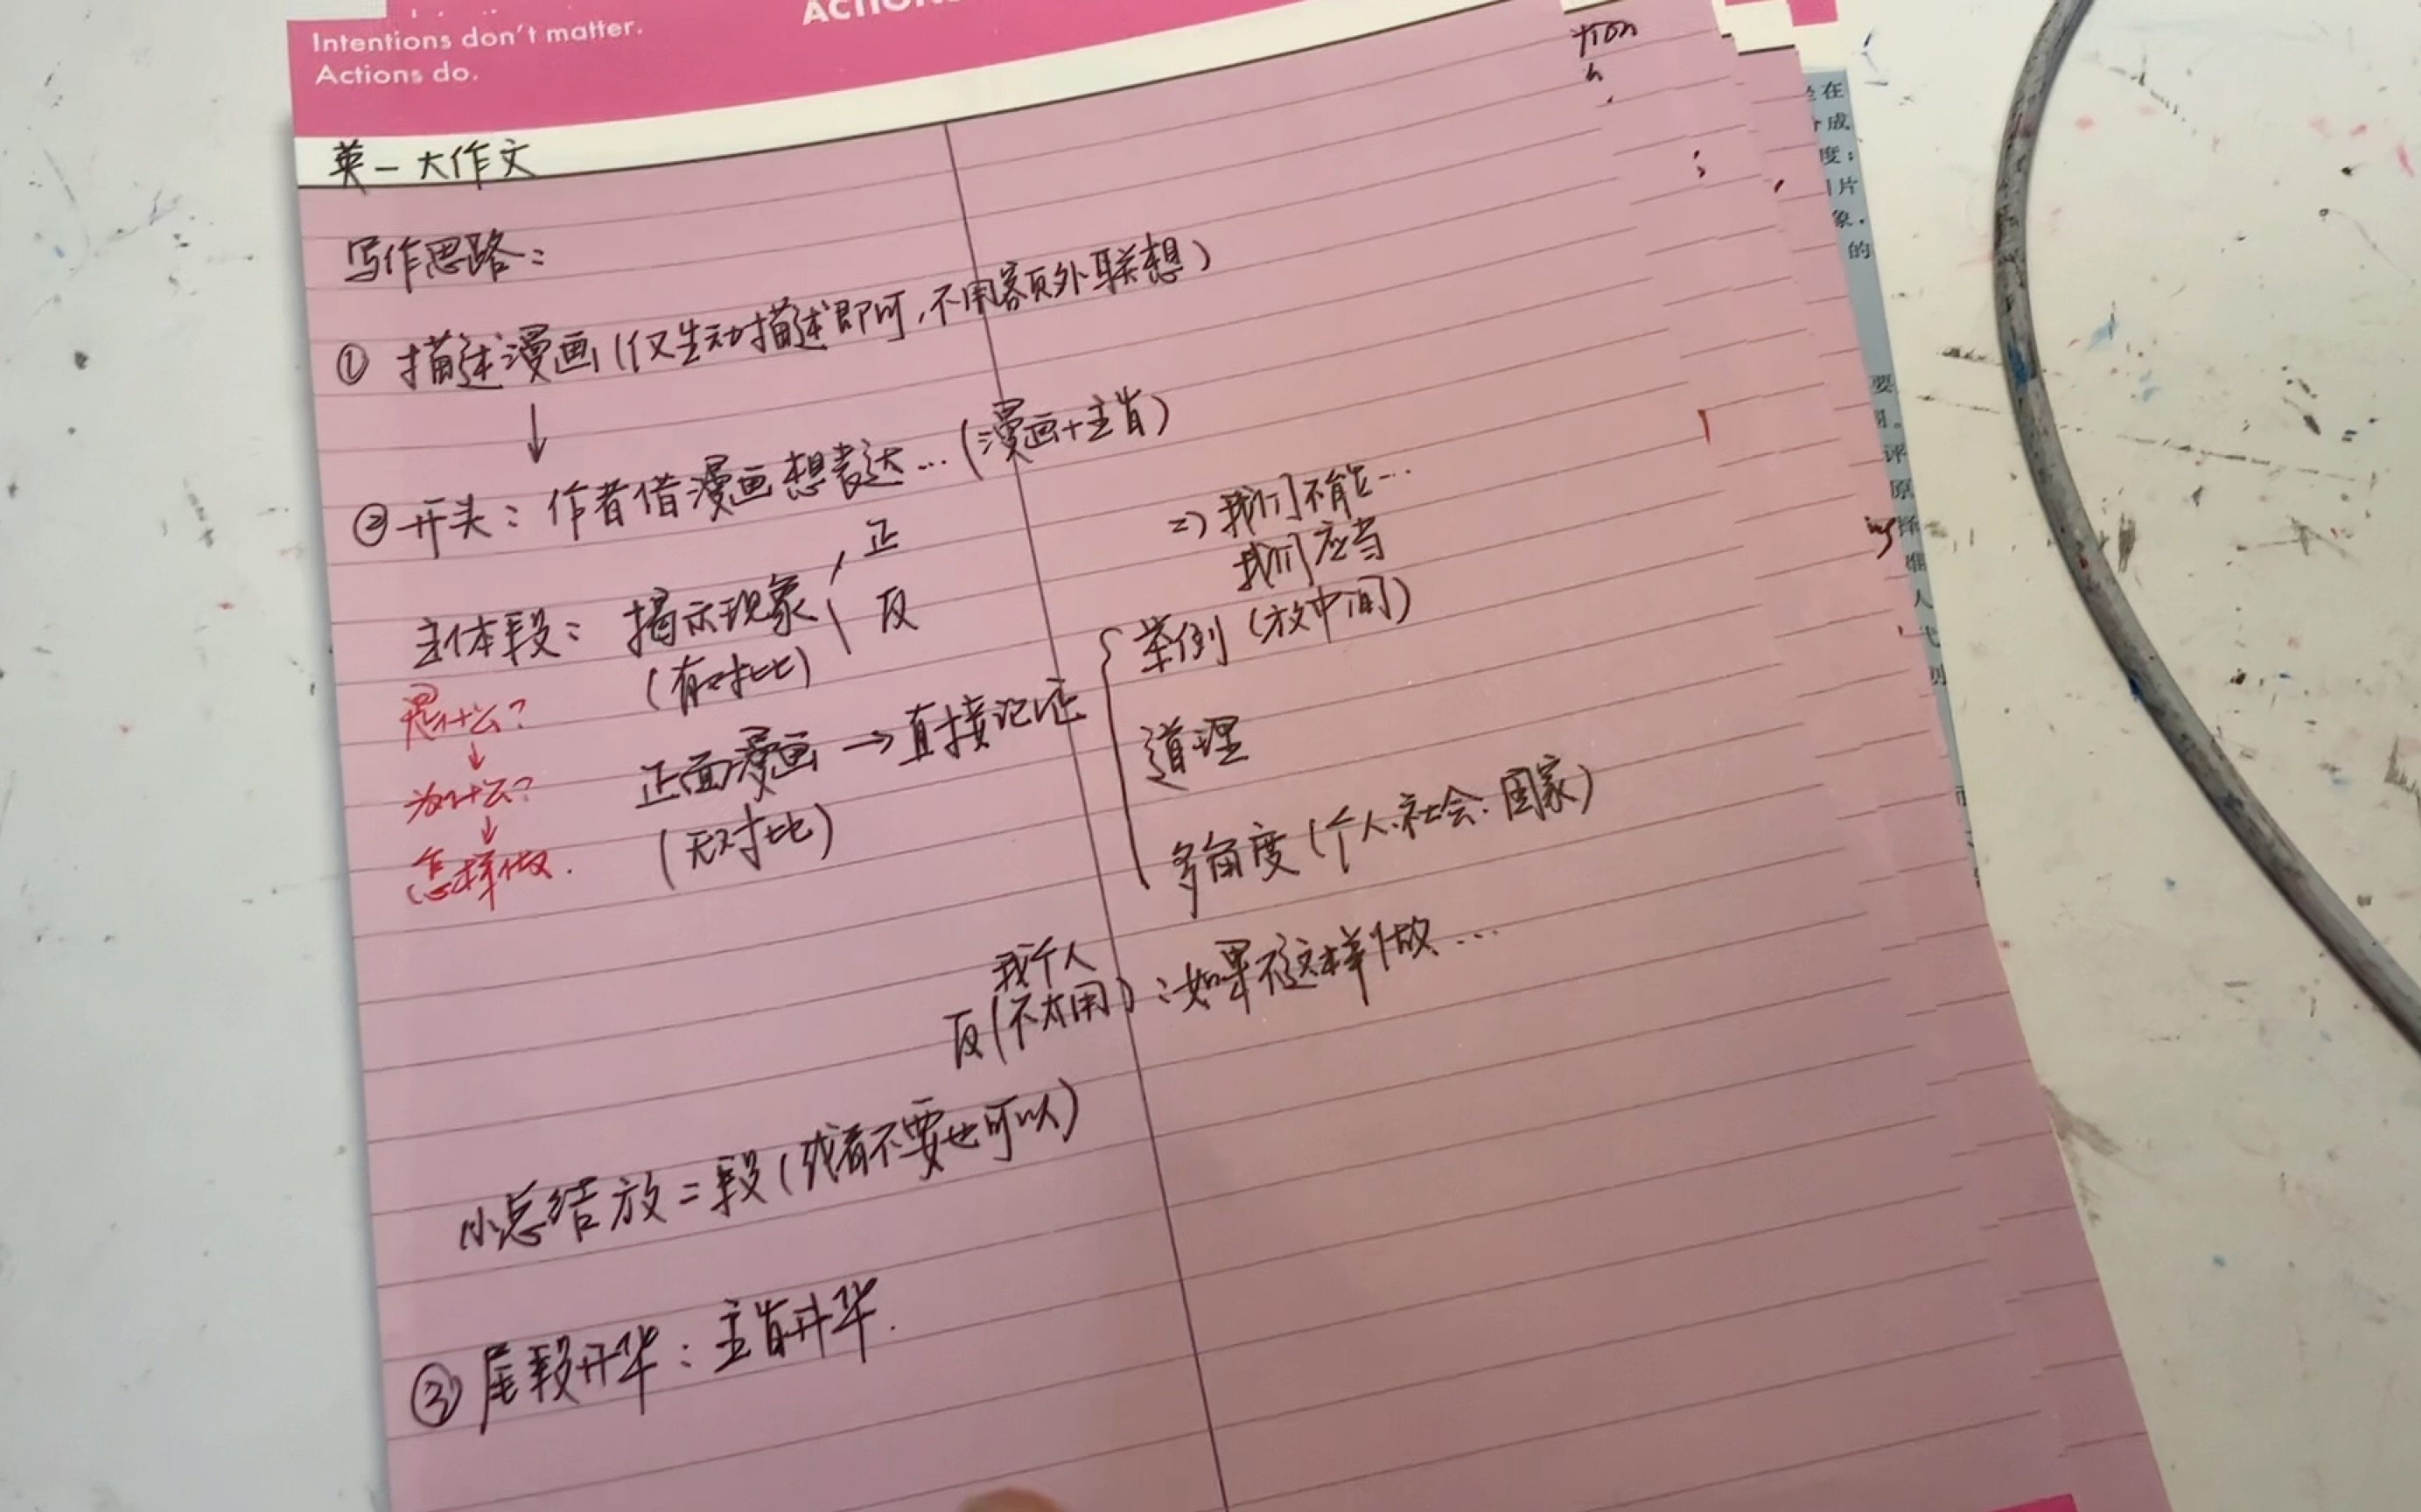 Intentions don't matter.
Actions do.
英一大作文
写作思路：
① 描述漫画(仅生动描述即可，不用额外联想)
↓
② 开头：作者借漫画想表达…(漫画+主旨)
主体段：揭示现象 正
反
(有对比)
=> 我们不能…
我们应当
是什么？
↓
为什么？
↓
怎样做.
正面漫画→直接论证
(无对比)
举例(放中间)
道理
多角度(个人.社会.国家)
我个人
反(不太用)：如果不这样做…
小总结放二段(或者不要也可以)
③ 尾段升华：主旨升华.
tion
在
成
度；
片
象，
的
要
评
原
ing
人